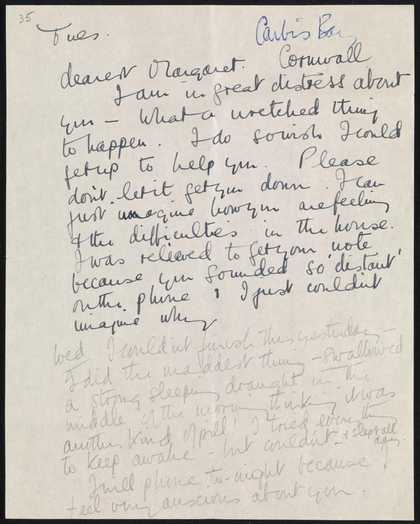 35
Tues.
Carbis Bay
Cornwall
dearest Margaret.
I am in great distress about
you – What a wretched thing
to happen. I do so wish I could
get up to help you. Please
don't let it get you down. I can
just imagine how you are feeling
& the difficulties in the house.
I was relieved to get your note
because you sounded so 'distant'
on the phone & I just couldn't
imagine why
Wed I couldn't finish this yesterday –
I did the maddest thing – swallowed
a strong sleeping draught in the
middle of the morning thinking it was
another kind of pill! I tried everything
to keep awake – but couldn't & slept all
day.
I will phone to-night because I
feel very anxious about you.